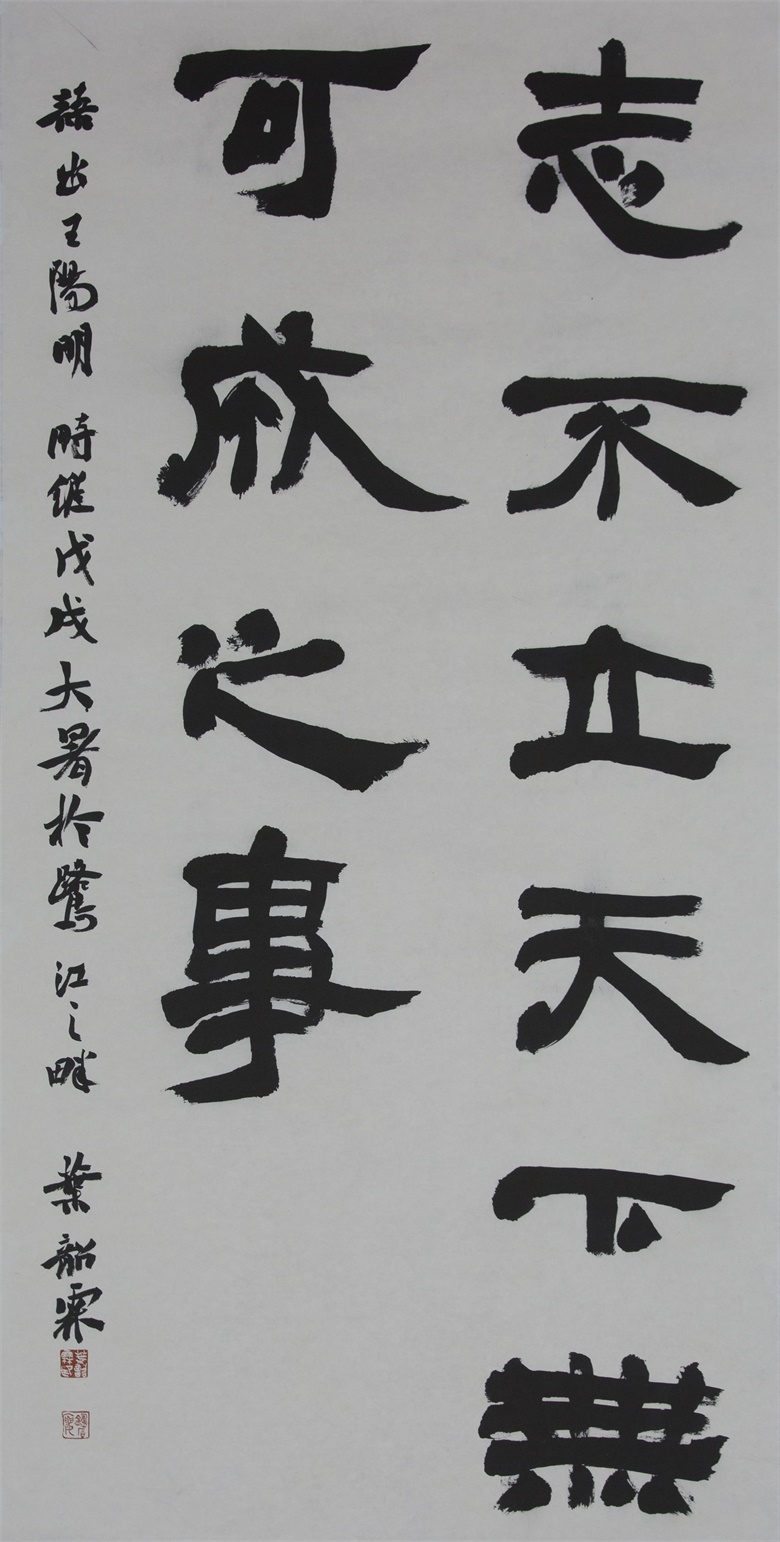 志不立天下無
可成之事
語出王陽明 時維戊戌大暑於鷺江之畔 葉韶霖